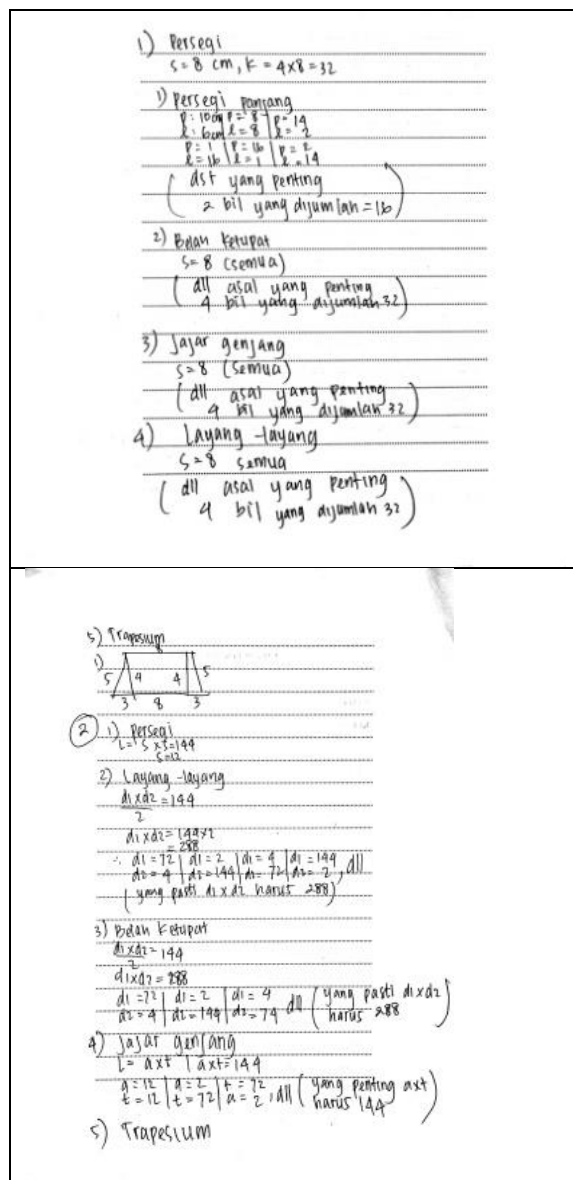 1) Persegi
s = 8 cm, K = 4x8 = 32
1) persegi panjang
p: 10cm | p = 8 | p = 14
l: 6cm | l = 8 | l = 2
p = 1 | p = 16 | p = 2
l = 16 | l = 1 | l = 14
( dst yang penting
2 bil yang dijumlah = 16 )
2) Belah Ketupat
s = 8 (semua)
( dll asal yang penting
4 bil yang dijumlah 32 )
3) Jajar genjang
s = 8 (semua)
( dll asal yang penting
4 bil yang dijumlah 32 )
4) Layang-layang
s = 8 semua
( dll asal yang penting
4 bil yang dijumlah 32 )
5) Trapesium
1)
8
5 4 4 5
3 8 3
2 1) persegi
L = s x s = 144
s = 12
2) Layang-layang
d1 x d2 = 144
2
d1 x d2 = 144 x 2
= 288
∴ d1 = 72 | d1 = 2 | d1 = 4 | d1 = 144
d2 = 4 | d2 = 144 | d2 = 72 | d2 = 2, dll
( yang pasti d1 x d2 harus 288 )
3) Belah Ketupat
d1 x d2 = 144
2
d1 x d2 = 288
d1 = 72 | d1 = 2 | d1 = 4 dll ( yang pasti d1 x d2
d2 = 4 | d2 = 144 | d2 = 74 harus 288 )
4) Jajar genjang
L = axt | axt = 144
a = 12 | a = 2 | t = 72 ( yang penting axt
t = 12 | t = 72 | a = 2, dll harus 144 )
5) Trapesium